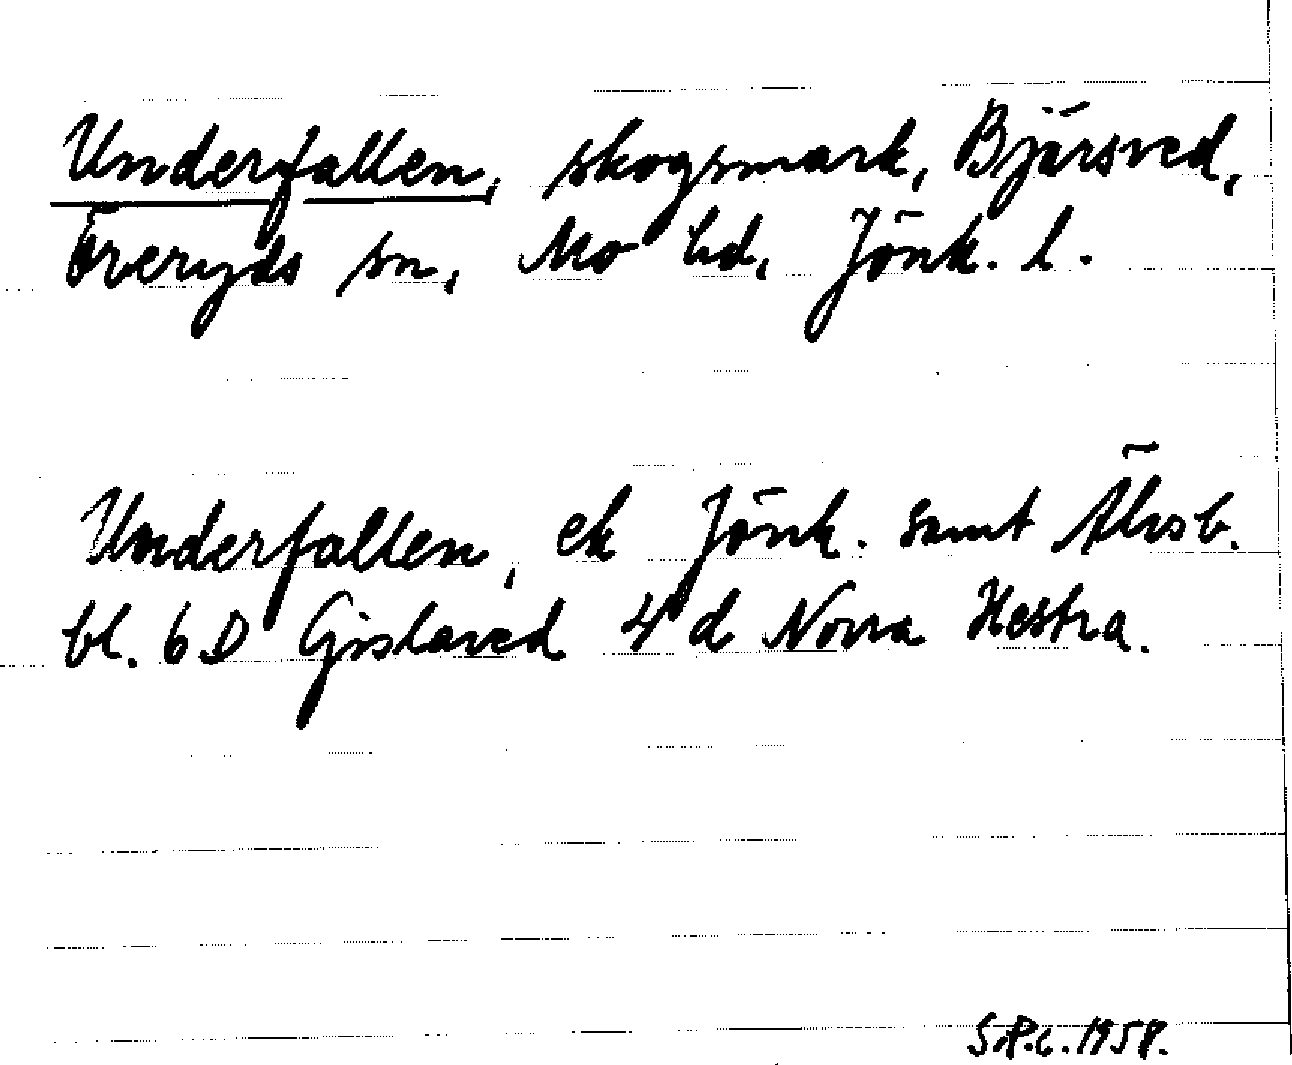 Underfallen, skogsmark, Bjärsved,
Öreryds sn, Mo hd, Jönk. l.
Underfallen, ek Jönk. samt Älvsb.
bl. 6 D Gislaved 4 d Norra Hestra.
1958.